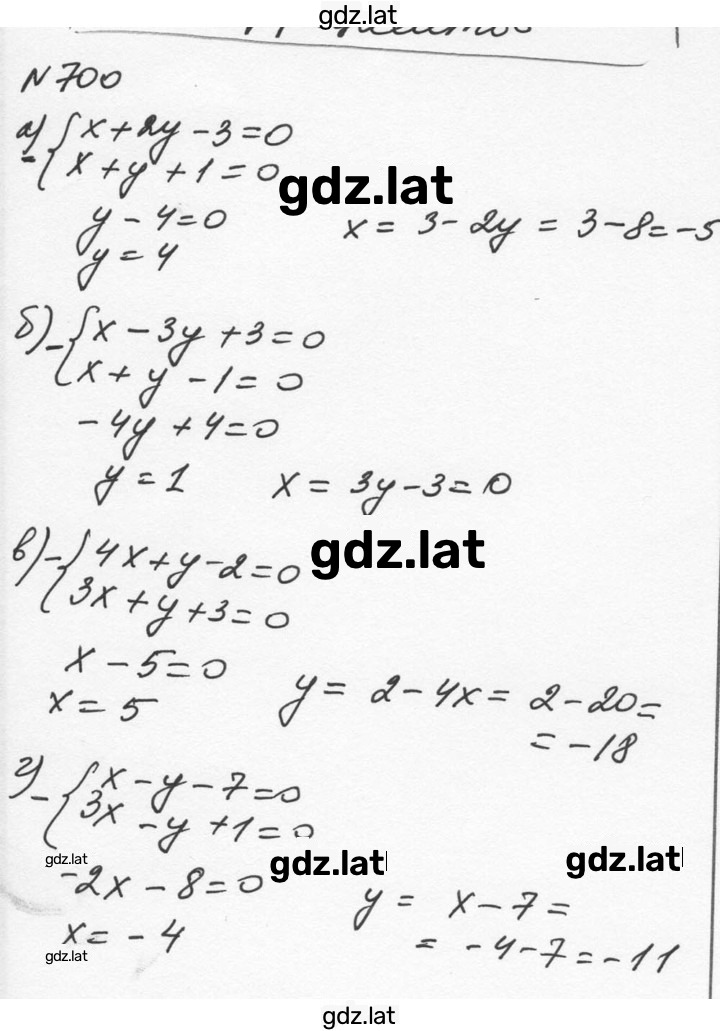 gdz.lat
N 700
а) - { x + 2y - 3 = 0
x + y + 1 = 0
gdz.lat
y - 4 = 0    x = 3 - 2y = 3 - 8 = -5
y = 4
б) - { x - 3y + 3 = 0
x + y - 1 = 0
-4y + 4 = 0
y = 1    x = 3y - 3 = 0
в) - { 4x + y - 2 = 0
gdz.lat
3x + y + 3 = 0
x - 5 = 0
x = 5    y = 2 - 4x = 2 - 20 =
= -18
г) - { x - y - 7 = 0
3x - y + 1 = 0
gdz.lat gdz.lat gdz.lat
-2x - 8 = 0    y = x - 7 =
x = -4    = -4 - 7 = -11
gdz.lat
gdz.lat